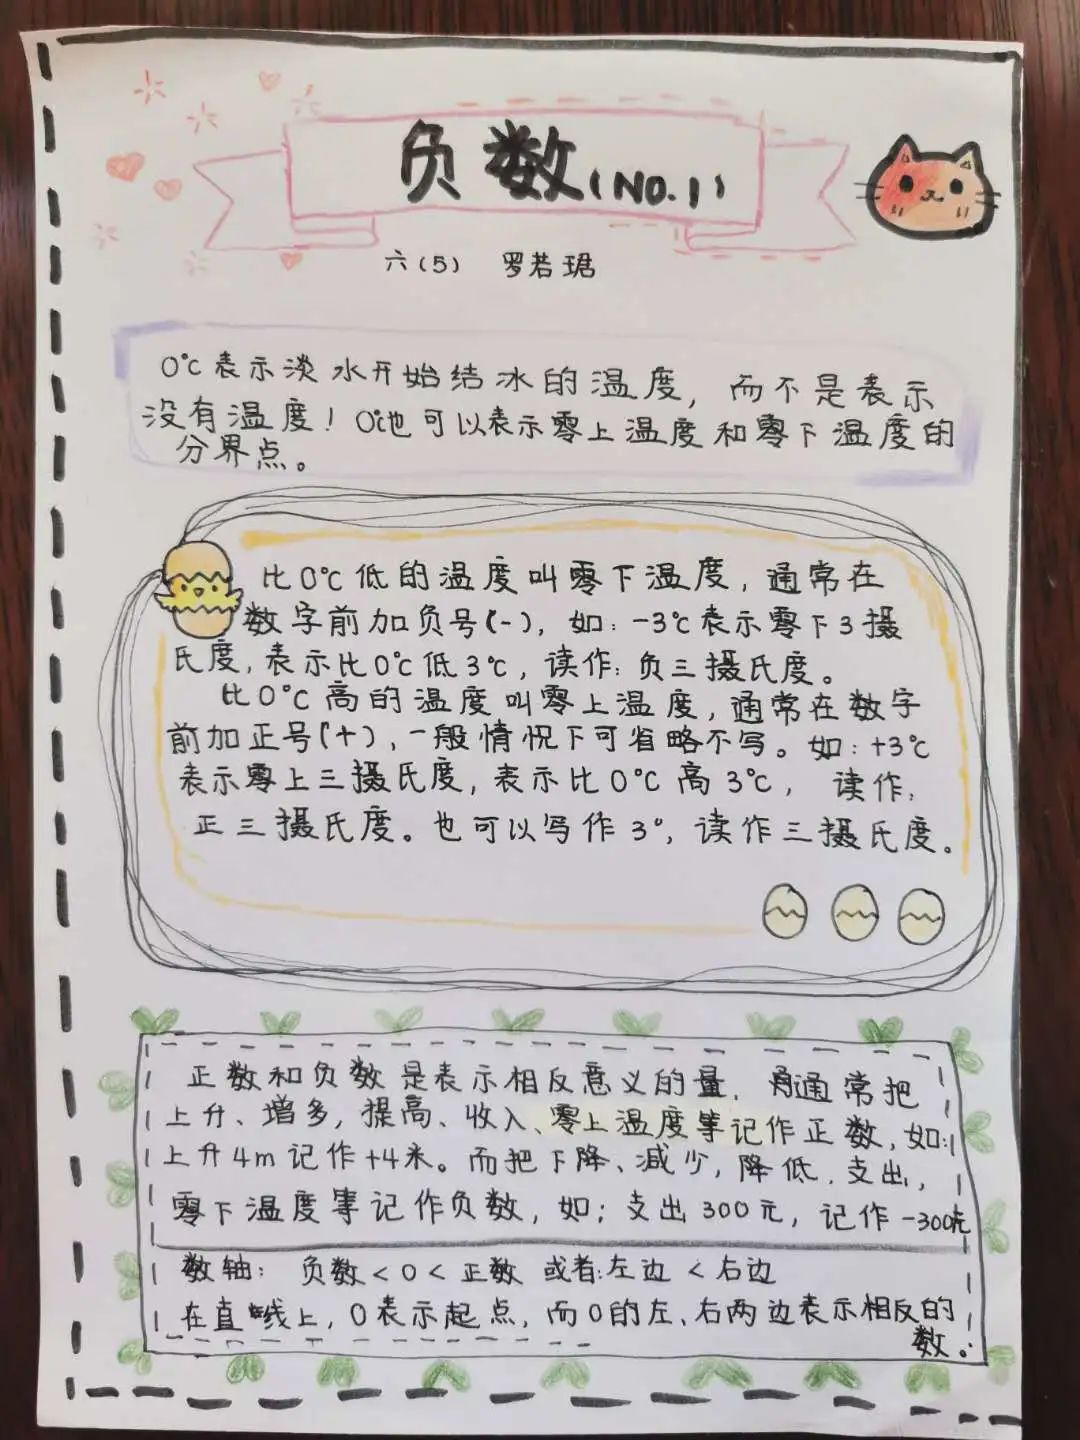 负数(NO.1)
六(5) 罗若珺
0℃表示淡水开始结冰的温度，而不是表示
没有温度！0℃也可以表示零上温度和零下温度的
分界点。
比0℃低的温度叫零下温度，通常在
数字前加负号(-)，如：-3℃表示零下3摄
氏度，表示比0℃低3℃，读作：负三摄氏度。
比0℃高的温度叫零上温度，通常在数字
前加正号(+)，一般情况下可省略不写。如：+3℃
表示零上三摄氏度，表示比0℃高3℃， 读作：
正三摄氏度。也可以写作3°，读作三摄氏度。
正数和负数是表示相反意义的量. 通常把
上升、增多，提高、收入、零上温度等记作正数，如：
上升4m记作+4米。而把下降、减少，降低.支出，
零下温度等记作负数，如：支出300元，记作-300元
数轴：负数<0<正数 或者:左边<右边
在直线上，0表示起点，而0的左、右两边表示相反的
数。